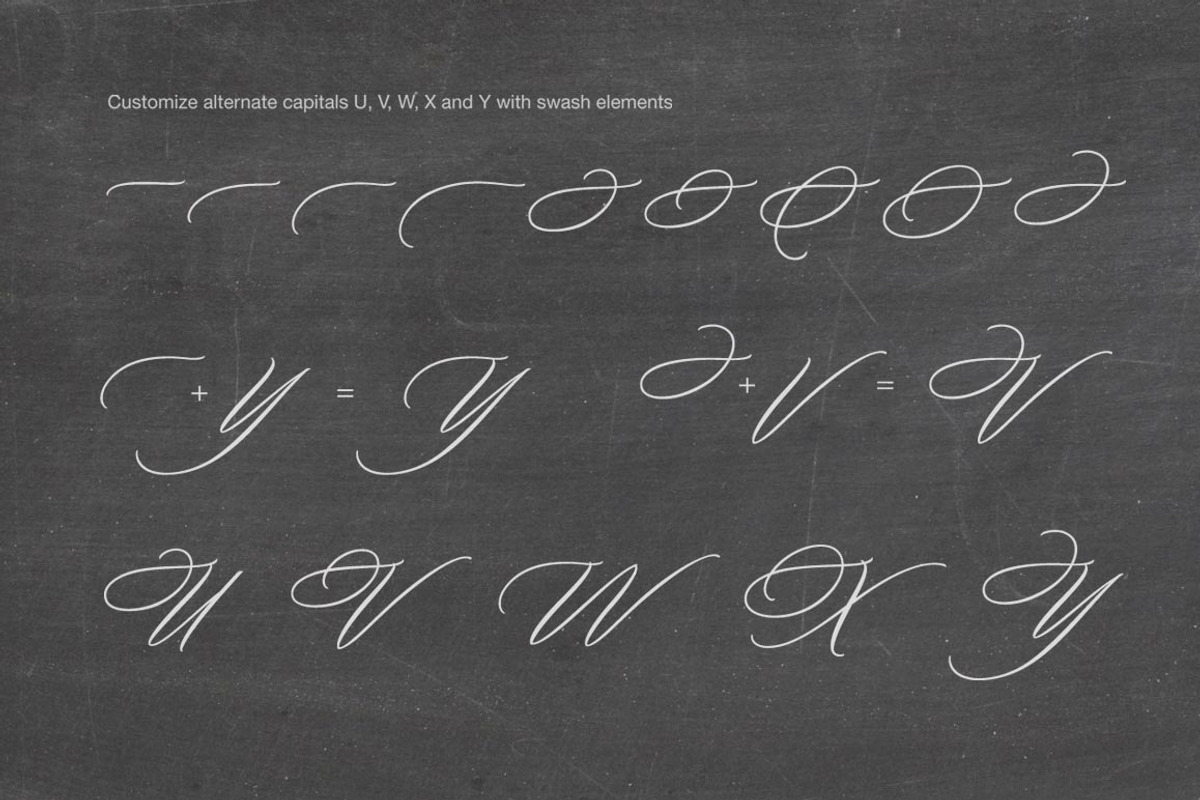 Customize alternate capitals U, V, W, X and Y with swash elements
+ Y = Y + V = V
U V W X Y